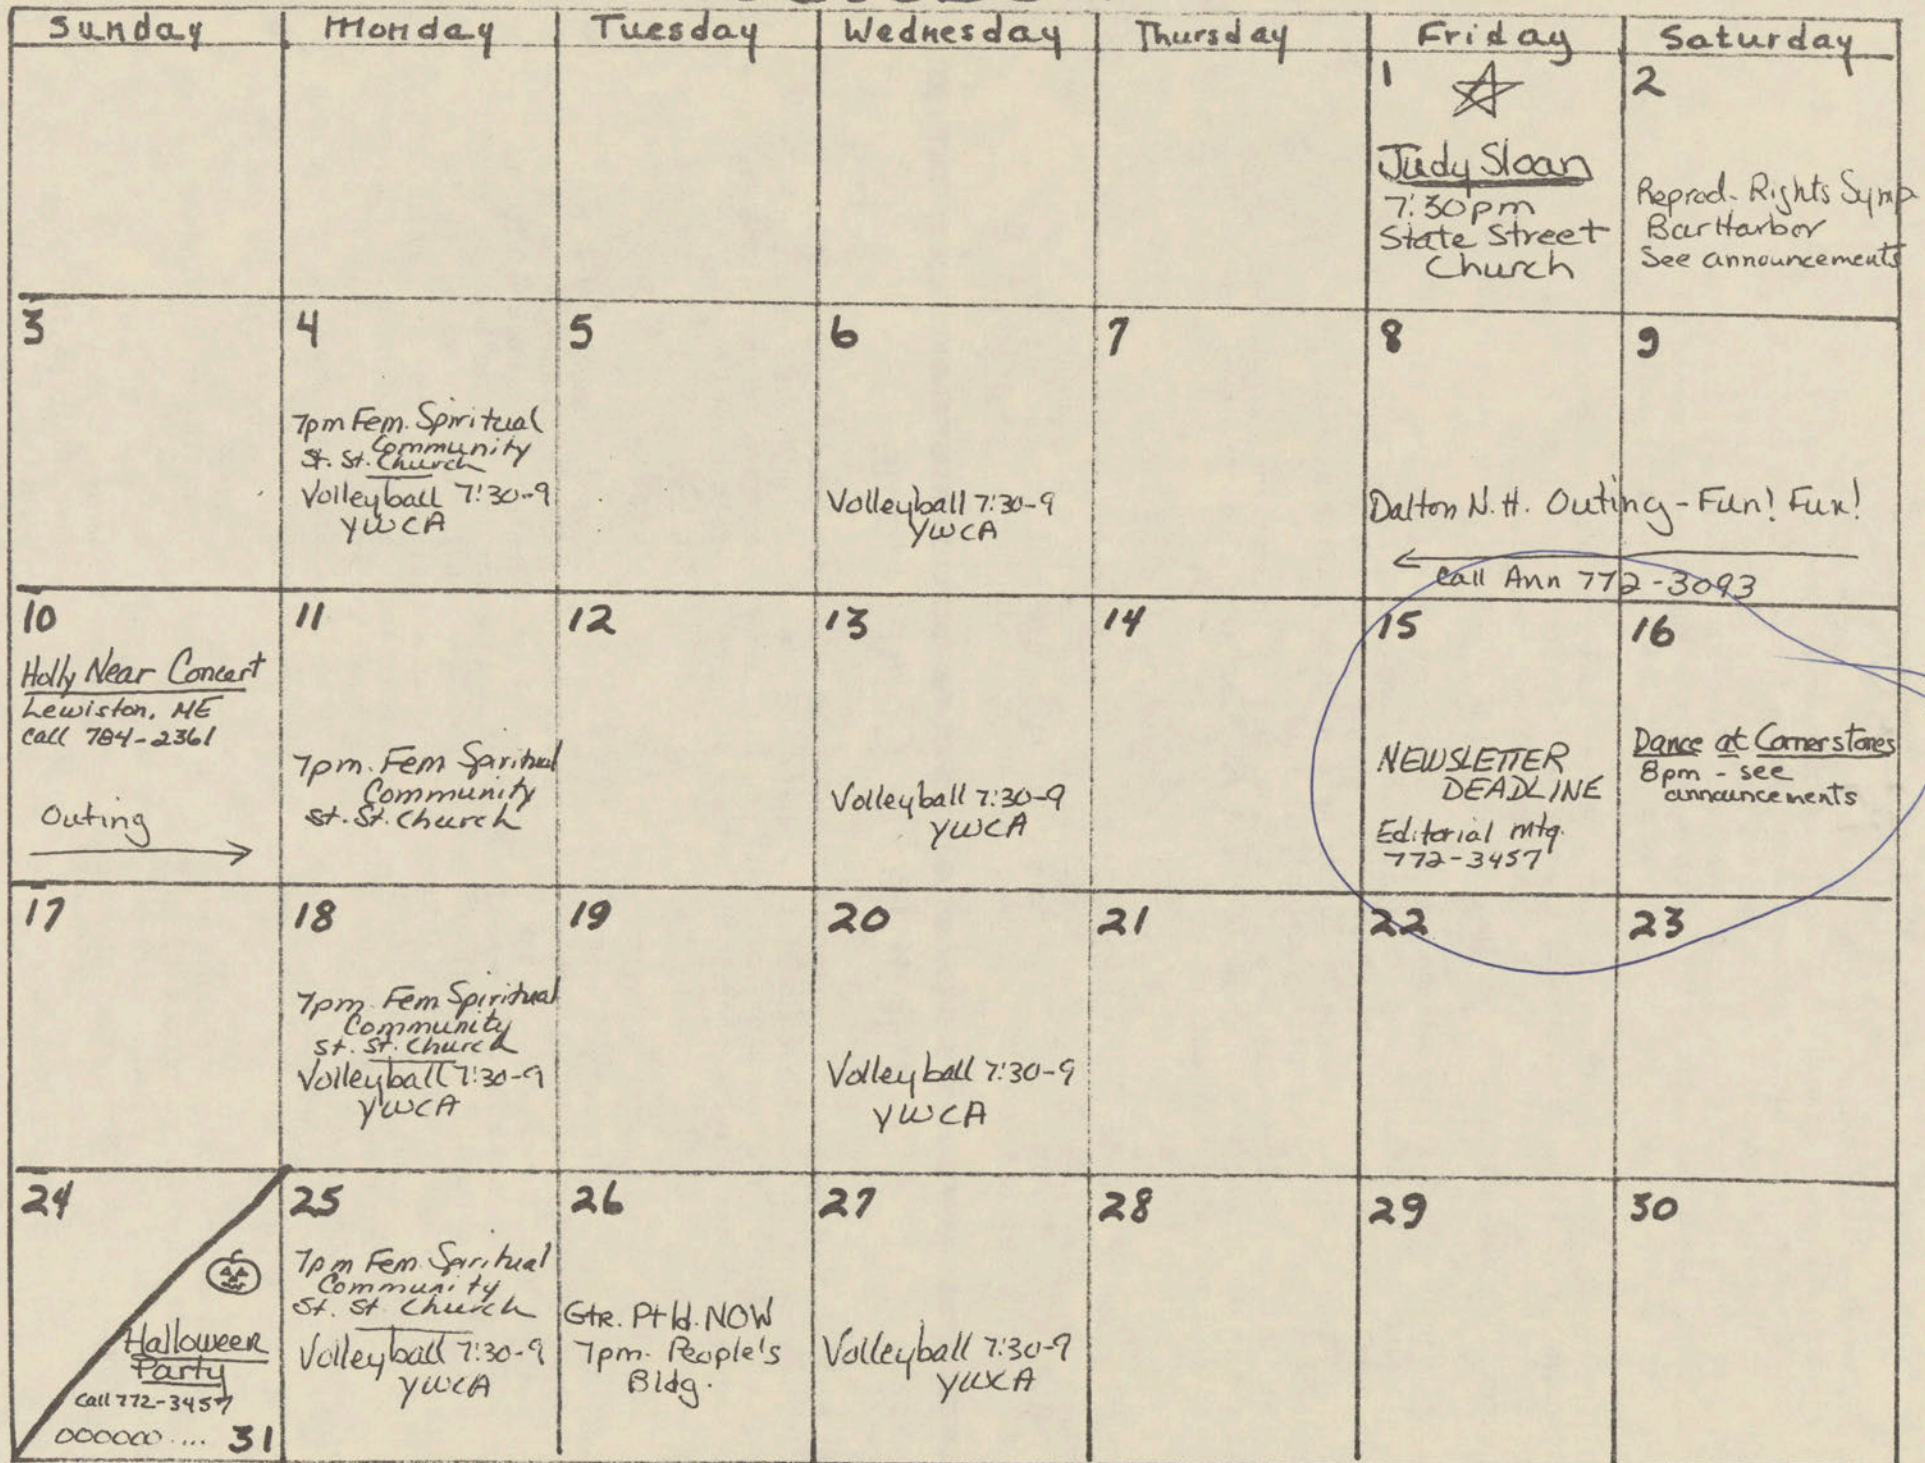 Sunday
Monday
Tuesday
Wednesday
Thursday
Friday
Saturday
1
Judy Sloan
7:30pm
State Street
Church
2
Reprod. Rights Symp
Bar Harbor
See announcements
3
4
7pm Fem. Spiritual
Community
St. St. Church
Volleyball 7:30-9
YWCA
5
6
Volleyball 7:30-9
YWCA
7
8
9
Dalton N.H. Outing - Fun! Fun!
Call Ann 772-3093
10
Holly Near Concert
Lewiston, ME
call 784-2361
Outing
11
7pm. Fem Spiritual
Community
St. St. Church
12
13
Volleyball 7:30-9
YWCA
14
15
NEWSLETTER
DEADLINE
Editorial mtg.
772-3457
16
Dance at Cornerstones
8pm - see
announcements
17
18
7pm. Fem Spiritual
Community
St. St. Church
Volleyball 7:30-9
YWCA
19
20
Volleyball 7:30-9
YWCA
21
22
23
24
Halloween
Party
call 772-3457
oooooo.... 31
25
7pm Fem Spiritual
Community
St. St Church
Volleyball 7:30-9
YWCA
26
Gtr. Ptld. NOW
7pm. People's
Bldg.
27
Volleyball 7:30-9
YWCA
28
29
30